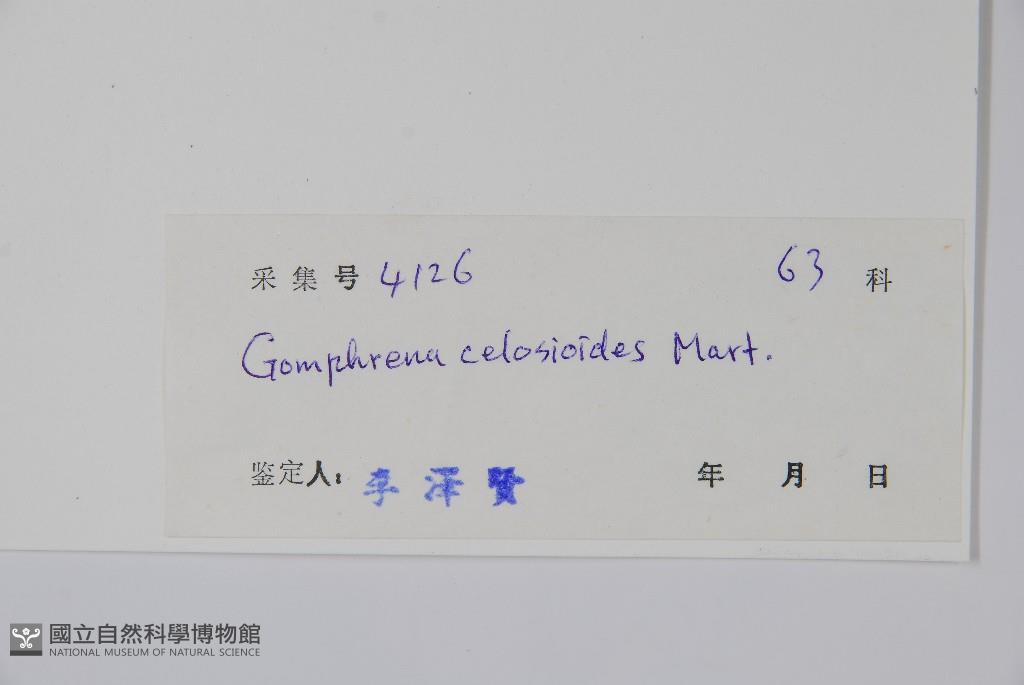 采集号 4126 63 科
Gomphrena celosioides Mart.
鉴定人: 李泽贤 年 月 日
國立自然科學博物館
NATIONAL MUSEUM OF NATURAL SCIENCE